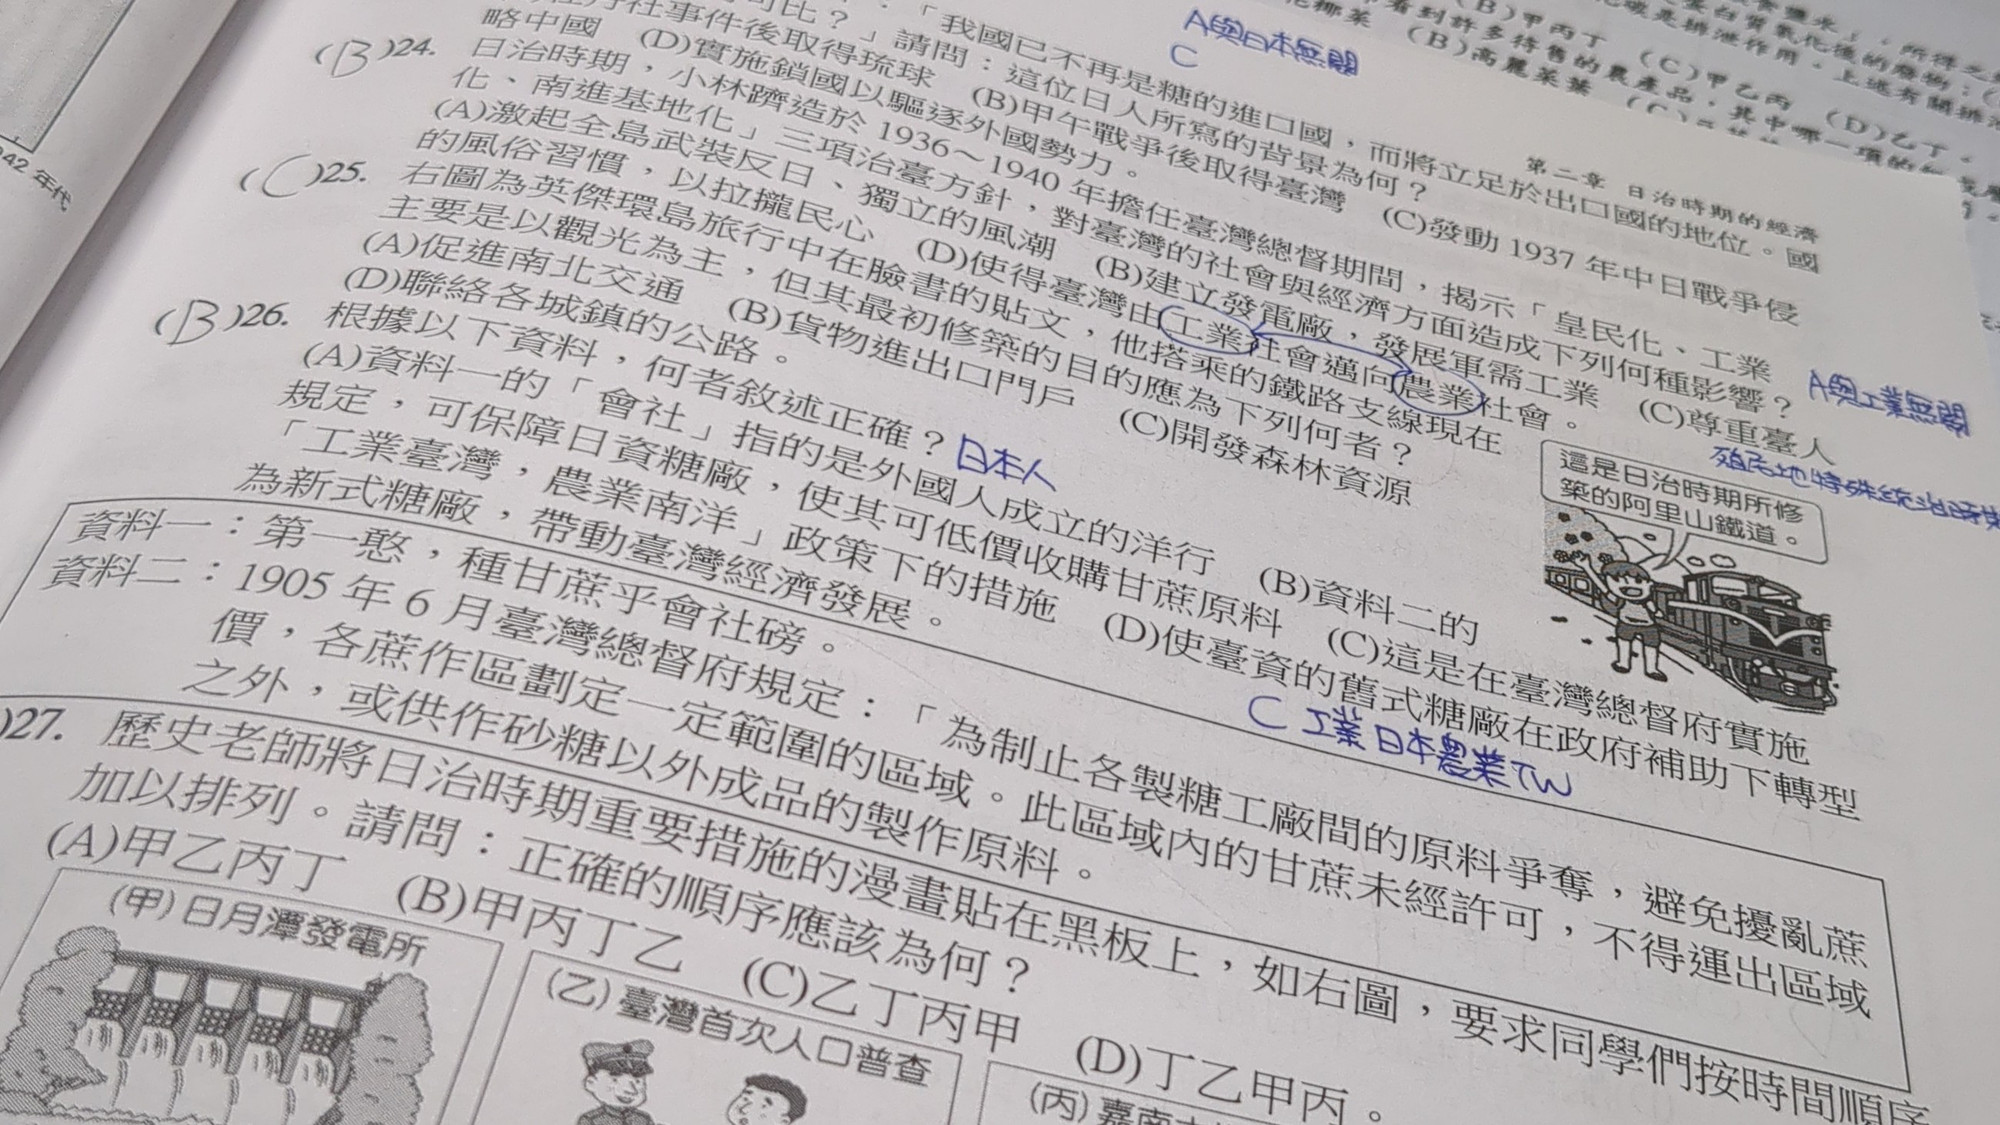 第二章 日治時期的經濟
「我國已不再是糖的進口國，而將立足於出口國的地位。國
可比？」請問：這位日人所寫的背景為何？
社事件後取得琉球 (B)甲午戰爭後取得臺灣 (C)發動 1937 年中日戰爭侵
略中國 (D)實施鎖國以驅逐外國勢力。
A與日本無關
C
(B)24. 日治時期，小林躋造於 1936～1940 年擔任臺灣總督期間，揭示「皇民化、工業
化、南進基地化」三項治臺方針，對臺灣的社會與經濟方面造成下列何種影響？
(A)激起全島武裝反日、獨立的風潮 (B)建立發電廠，發展軍需工業 (C)尊重臺人
的風俗習慣，以拉攏民心 (D)使得臺灣由工業社會邁向農業社會。
A與工業無關
(C)25. 右圖為英傑環島旅行中在臉書的貼文，他搭乘的鐵路支線現在
主要是以觀光為主，但其最初修築的目的應為下列何者？
(A)促進南北交通 (B)貨物進出口門戶 (C)開發森林資源
(D)聯絡各城鎮的公路。
這是日治時期所修
築的阿里山鐵道。
(B)26. 根據以下資料，何者敘述正確？
日本人
(A)資料一的「會社」指的是外國人成立的洋行 (B)資料二的
規定，可保障日資糖廠，使其可低價收購甘蔗原料 (C)這是在臺灣總督府實施
「工業臺灣，農業南洋」政策下的措施 (D)使臺資的舊式糖廠在政府補助下轉型
為新式糖廠，帶動臺灣經濟發展。
C 工業日本農業TW
資料一：第一憨，種甘蔗乎會社磅。
資料二：1905 年 6 月臺灣總督府規定：「為制止各製糖工廠間的原料爭奪，避免擾亂蔗
價，各蔗作區劃定一定範圍的區域。此區域內的甘蔗未經許可，不得運出區域
之外，或供作砂糖以外成品的製作原料。
)27. 歷史老師將日治時期重要措施的漫畫貼在黑板上，如右圖，要求同學們按時間順序
加以排列。請問：正確的順序應該為何？
(A)甲乙丙丁 (B)甲丙丁乙 (C)乙丁丙甲 (D)丁乙甲丙。
(甲)日月潭發電所
(乙)臺灣首次人口普查
(丙)嘉南大
942 年代
(B)甲丙丁 (C)甲乙丙 (D)乙丁。
看到許多待售的農產品，其中哪一項的
(B)高麗菜葉